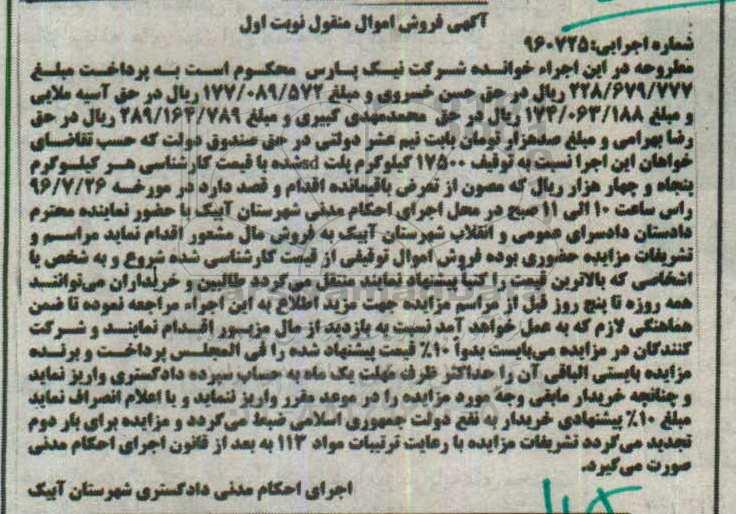 آگهی فروش اموال منقول نوبت اول
شماره اجرایی: ۹۶۰۷۲۵
مطروحه در این اجراء خوانده شرکت نیک پارس محکوم است به پرداخت مبلغ
۲۲۸/۶۷۹/۷۷۷ ریال در حق حسن خسروی و مبلغ ۱۷۷/۰۸۹/۵۷۲ ریال در حق آسیه ملایی
و مبلغ ۱۷۴/۰۶۳/۱۸۸ ریال در حق محمدمهدی کبیری و مبلغ ۲۸۹/۱۶۴/۷۸۹ ریال در حق
رضا بهرامی و مبلغ صدهزار تومان بابت نیم عشر دولتی در حق صندوق دولت که حسب تقاضای
خواهان این اجرا نسبت به توقیف ۱۷۵۰۰ کیلوگرم پلت sdشده با قیمت کارشناسی هر کیلوگرم
پنجاه و چهار هزار ریال که مصون از تعرض باقیمانده اقدام و قصد دارد در مورخه ۹۶/۷/۲۶
راس ساعت ۱۰ الی ۱۱ صبح در محل اجرای احکام مدنی شهرستان آبیک با حضور نماینده محترم
دادستان دادسرای عمومی و انقلاب شهرستان آبیک به فروش مال مشعور اقدام نماید مراسم و
تشریفات مزایده حضوری بوده فروش اموال توقیفی از قیمت کارشناسی شده شروع و به شخص یا
اشخاصی که بالاترین قیمت را کتباً پیشنهاد نمایند منتقل می‌گردد طالبین و خریداران می‌توانند
همه روزه تا پنج روز قبل از مراسم مزایده جهت مزید اطلاع به این اجراء مراجعه نموده تا ضمن
هماهنگی لازم که به عمل خواهد آمد نسبت به بازدید از مال مزبور اقدام نمایند و شرکت
کنندگان در مزایده می‌بایست بدواً ۱۰٪ قیمت پیشنهاد شده را فی المجلس پرداخت و برنده
مزایده بایستی الباقی آن را حداکثر ظرف مهلت یک ماه به حساب سپرده دادگستری واریز نماید
و چنانچه خریدار مابقی وجه مورد مزایده را در موعد مقرر واریز ننماید و یا اعلام انصراف نماید
مبلغ ۱۰٪ پیشنهادی خریدار به نفع دولت جمهوری اسلامی ضبط می‌گردد و مزایده برای بار دوم
تجدید می‌گردد تشریفات مزایده با رعایت ترتیبات مواد ۱۱۳ به بعد از قانون اجرای احکام مدنی
صورت می‌گیرد.
اجرای احکام مدنی دادگستری شهرستان آبیک